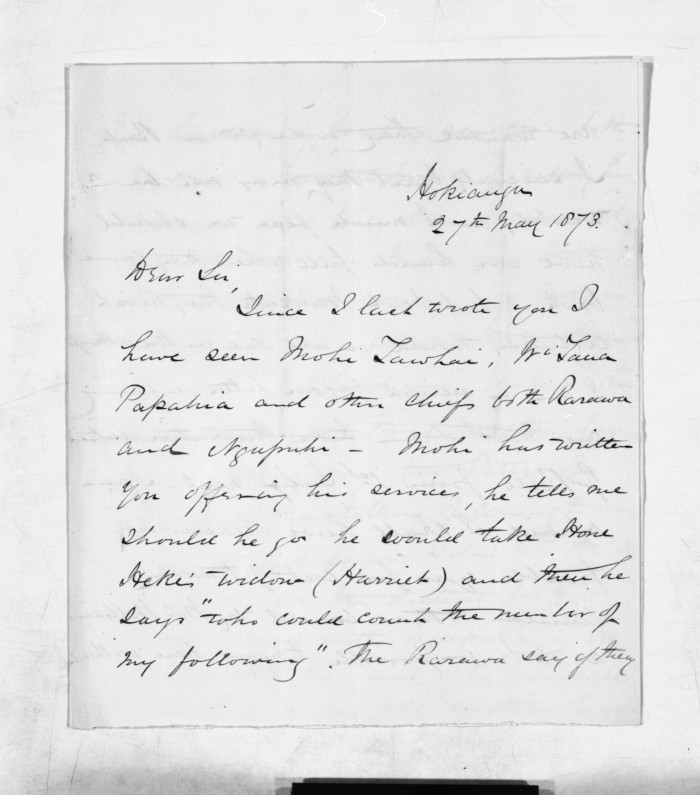 Hokianga
27th May 1873.
Dear Sir,
Since I last wrote you I
have seen Mohi Tawhai, Wi Tana
Papahia and other chiefs both Rarawa
and Ngapuhi – Mohi has written
you offering his services, he tells me
should he go he would take Hone
Heke's widow (Harriet) and then he
says "who could count the number of
my following". The Rarawa say if they